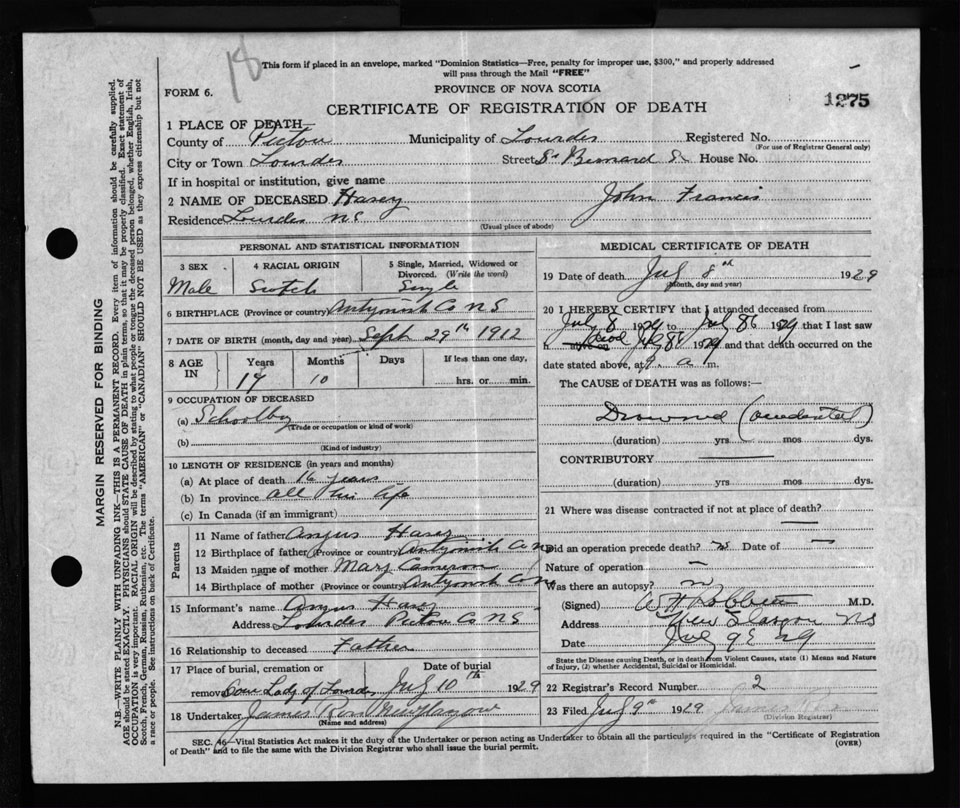 18
This form if placed in an envelope, marked "Dominion Statistics—Free, penalty for improper use, $300," and properly addressed
will pass through the Mail "FREE"
FORM 6.
PROVINCE OF NOVA SCOTIA
CERTIFICATE OF REGISTRATION OF DEATH
1275
1 PLACE OF DEATH—
County of Pictou Municipality of Lourdes Registered No.
(For use of Registrar General only)
City or Town Lourdes Street St Bernard St House No.
If in hospital or institution, give name
2 NAME OF DECEASED Hasey John Francis
Residence Lourdes NS
(Usual place of abode)
PERSONAL AND STATISTICAL INFORMATION
3 SEX Male
4 RACIAL ORIGIN Scotch
5 Single, Married, Widowed or
Divorced. (Write the word)
Single
6 BIRTHPLACE (Province or country) Antigonish Co NS
7 DATE OF BIRTH (month, day and year) Sept 29th 1912
8 AGE IN
Years 17
Months 10
Days
If less than one day,
hrs. or min.
9 OCCUPATION OF DECEASED
(a) Schoolboy
(Trade or occupation or kind of work)
(b)
(Kind of industry)
10 LENGTH OF RESIDENCE (in years and months)
(a) At place of death 16 years
(b) In province all his life
(c) In Canada (if an immigrant)
Parents
11 Name of father Angus Hasey
12 Birthplace of father (Province or country) Antigonish Co NS
13 Maiden name of mother Mary Cameron
14 Birthplace of mother (Province or country) Antigonish Co NS
15 Informant's name Angus Hasey
Address Lourdes Pictou Co NS
16 Relationship to deceased Father
17 Place of burial, cremation or Date of burial
removal Our Lady of Lourdes July 10th 1929
18 Undertaker James Ross New Glasgow
(Name and address)
MEDICAL CERTIFICATE OF DEATH
19 Date of death July 8th 1929
(Month, day and year)
20 I HEREBY CERTIFY that I attended deceased from
July 8 1929 to July 8th 1929 that I last saw
h alive on July 8th 1929 and that death occurred on the
date stated above, at 9 a m.
The CAUSE OF DEATH was as follows:—
Drowned (accidental)
(duration) yrs mos dys.
CONTRIBUTORY
(duration) yrs mos dys.
21 Where was disease contracted if not at place of death?
Did an operation precede death? no Date of
Nature of operation
Was there an autopsy? no
(Signed) M.D.
Address New Glasgow NS
Date July 9th 29
State the Disease causing Death, or in death from Violent Causes, state (1) Means and Nature
of Injury, (2) whether Accidental, Suicidal or Homicidal.
22 Registrar's Record Number 2
23 Filed July 9th 1929
(Division Registrar)
SEC. 46—Vital Statistics Act makes it the duty of the Undertaker or person acting as Undertaker to obtain all the particulars required in the "Certificate of Registration
of Death" and to file the same with the Division Registrar who shall issue the burial permit.
(OVER)
MARGIN RESERVED FOR BINDING
N.B.—WRITE PLAINLY WITH UNFADING INK—THIS IS A PERMANENT RECORD. Every item of information should be carefully supplied.
AGE should be stated EXACTLY. PHYSICIANS should STATE CAUSE OF DEATH in plain terms, so that it may be properly classified. Exact statement of
OCCUPATION is very important. RACIAL ORIGIN will be described by stating to what people or tongue the deceased person belonged, whether English, Irish,
Scotch, French, German, Russian, Ruthenian, etc. The terms "AMERICAN" or "CANADIAN" SHOULD NOT BE USED as they express citizenship but not
a race or people. See instructions on back of Certificate.